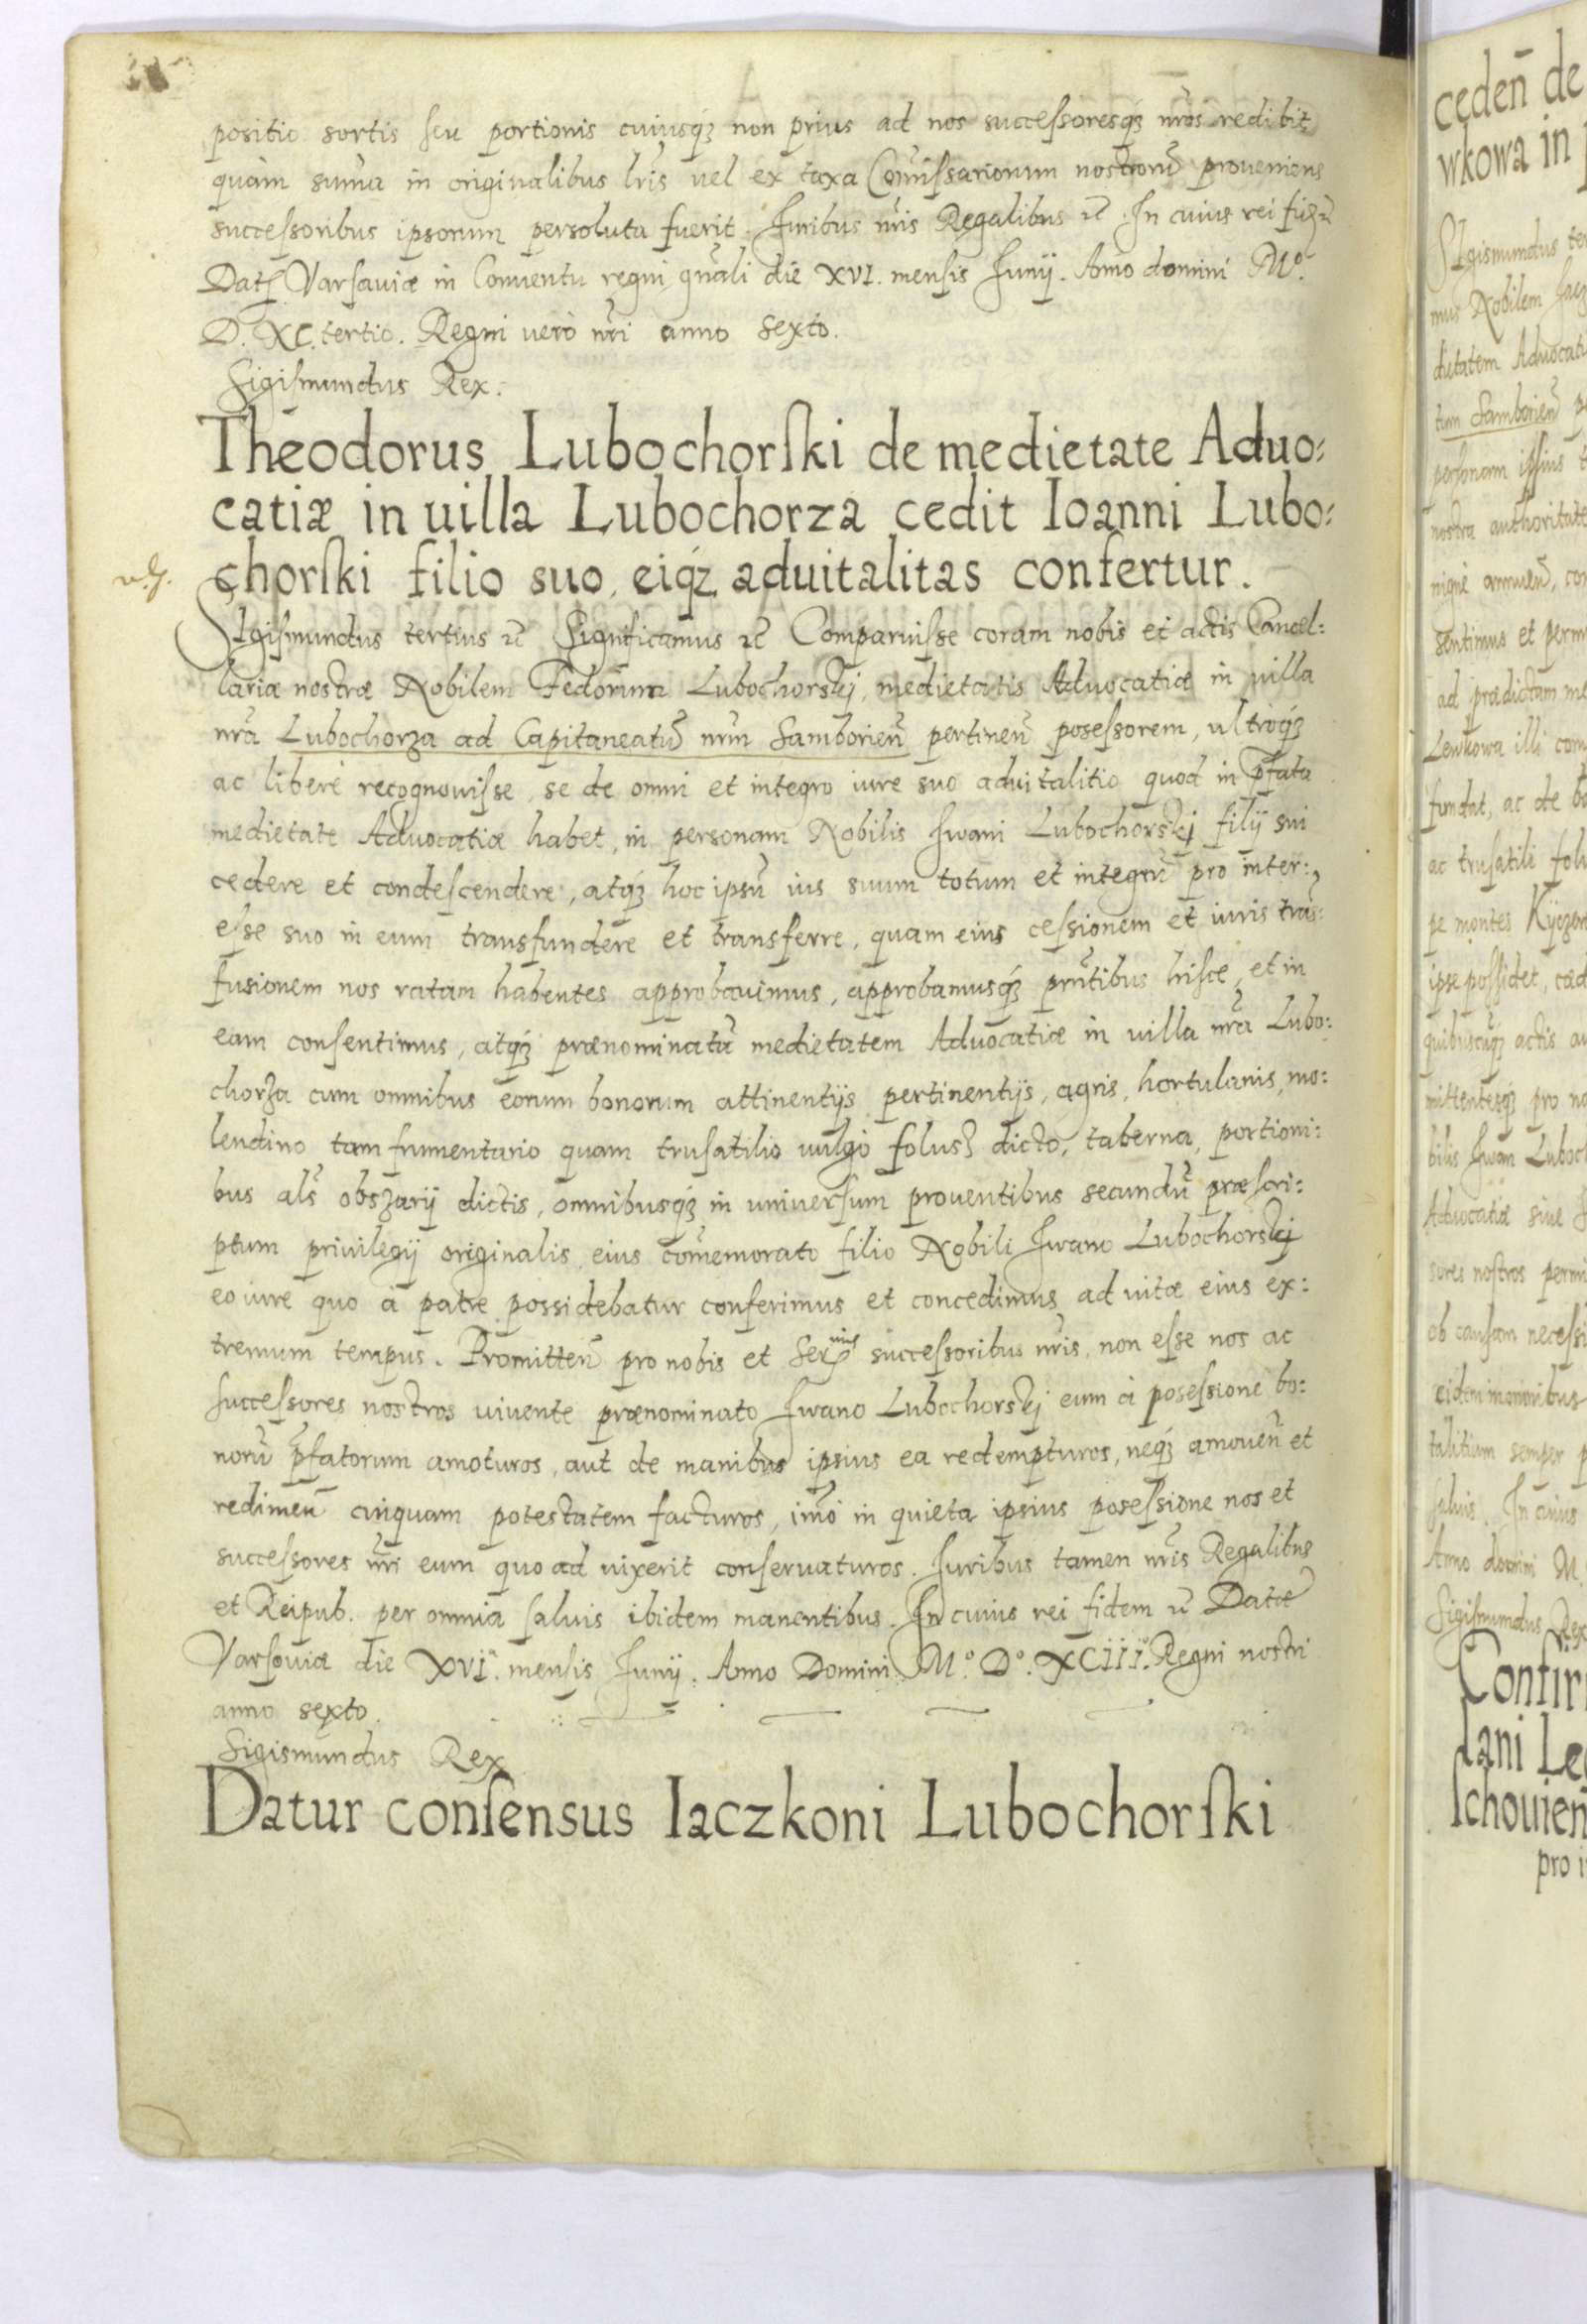 positio sortis seu portionis cuiusq́ʒ non prius ad nos successoresq́ʒ nr̃os redibit
quàm suma in originalibus lr̃is uel ex taxa Com̃issariorum nostrorũ proueniens
successoribus ipsorum persoluta fuerit. Iuribus nr̃is Regalibus &c̃. In cuius rei fid.
Dat. Varsauiæ in Conuentu regni gñali die XVI. mensis Iunij. Anno domini Mº.
D. XC. tertio. Regni uerò nr̃i anno sexto.
Sigismundus Rex.
Theodorus Lubochorski de medietate Aduo:
catiæ in uilla Lubochorza cedit Ioanni Lubo:
chorski filio suo, eiq́ʒ aduitalitas confertur.
SIgismundus tertius &c̃ Significamus &c̃ Comparuisse coram nobis et actis Cancel:
lariæ nostræ Nobilem Fedorum Lubochorskj, medietatis Aduocatiæ in uilla
nr̃a Lubochorza ad Capitaneatũ nr̃m Samborieñ pertineñ posessorem, ultroq́ʒ
ac liberè recognouisse, se de omni et integro iure suo aduitalitio quod in p̃fata
medietate Aduocatiæ habet, in personam Nobilis Iwani Lubochorskj filij sui
cedere et condescendere, atq́ʒ hoc ipsũ ius suum totum et integrũ pro inter:
esse suo in eum transfundere et transferre, quam eius cessionem et iuris trãs:
fusionem nos ratam habentes approbauimus, approbamusq́ʒ prñtibus hisce, et in
eam consentimus, atq́ʒ prænominatã medietatem Aduocatiæ in uilla nr̃a Lubo:
chorza cum omnibus eorum bonorum attinentijs pertinentijs, agris, hortulanis, mo:
lendino tam frumentario quam trusatilio uulgò folusz dicto, taberna, portioni:
bus als̃ obszarij dictis, omnibusq́ʒ in uniuersum prouentibus secundũ præscri:
ptum priuilegij originalis eius com̃emorato filio Nobili Iwano Lubochorskj
eo iure quo à patre possidebatur conferimus et concedimus ad uitæ eius ex:
tremum tempus. Promitteñ pro nobis et Ser.mis successoribus nr̃is, non esse nos ac
successores nostros uiuente prænominato Iwano Lubochorskj eum à posessione bo:
norũ p̃fatorum amoturos, aut de manibus ipsius ea redempturos, neq́ʒ amoueñ et
redimeñ cuiquam potestatem facturos, imò in quieta ipsius posessione nos et
successores nr̃i eum quo ad uixerit conseruaturos. Iuribus tamen nr̃is Regalibus
et Reipub. per omnia saluis ibidem manentibus. In cuius rei fidem &c̃ Datæ
Varsouiæ die XVI. mensis Iunij. Anno Domini Mº. Dº. XCIII. Regni nostri
anno sexto.
Sigismundus Rex
Datur consensus Iaczkoni Lubochorski
cedeñ de
wkowa in
SIgismundus
mus Nobilem
dietatem Aduocati
tum Samborieñ
personam ipsius
nostra authoritate
nignè annueñ, con
sentimus et perm
ad prædictam me
Lewkowa illi com
fundat, ac de bo
ac trusatili folu
pe montes
ipse possidet, ced
quibuscuq́ʒ actis au
mittentesq́ʒ pro no
bilis Iwan Luboch
Aduocatiæ siue
sores nostros permi
ob causam necessi
talitium semper p
saluis. In cuius
Anno domini M.
Sigismundus Rex
Confir
lani Le
schouien
pro i